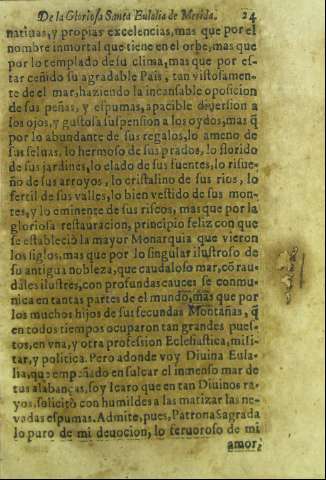 De la Gloriosa Santa Eulalia de Merida. 24
natiuas, y propias excelencias, mas que por el
nombre inmortal que tiene en el orbe, mas que
por lo templado de su clima, mas que por es-
tar ceñido su agradable Pais, tan vistosamen-
te de el mar, haziendo la incansable oposicion
de sus peñas, y espumas, apacible diuersion a
los ojos, y gustosa suspension a los oydos, mas q̃
por lo abundante de sus regalos, lo ameno de
sus seluas, lo hermoso de sus prados, lo florido
de sus jardines, lo elado de sus fuentes, lo risue-
ño de sus arroyos, lo cristalino de sus rios, lo
fertil de sus valles, lo bien vestido de sus mon-
tes, y lo eminente de sus riscos, mas que por la
gloriosa restauracion, principio feliz con que
se estableciò la mayor Monarquia que vieron
los siglos, mas que por lo singular ilustroso de
su antigua nobleza, que caudaloso mar, cõ rau-
dales ilustres, con profundas cauces se comu-
nica en tantas partes de el mundo, mas que por
los muchos hijos de sus fecundas Montañas, q̃
en todos tiempos ocuparon tan grandes pues-
tos, en vna, y otra profession Eclesiastica, mili-
tar, y politica. Pero adonde voy Diuina Eula-
lia, que empeñado en sulcar el inmenso mar de
tus alabanças, soy Icaro que en tan Diuinos ra-
yos, solicitò con humildes alas matizar las ne-
vadas espumas. Admite, pues, Patrona Sagrada
lo puro de mi deuocion, lo feruoroso de mi
amor,